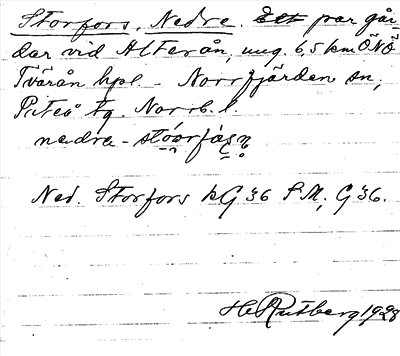 Storfors, Nedre. Ett par går
dar vid Alterån, ung. 6,5 km ÖNÖ
Tvärån hpl. - Norrfjärden sn,
Piteå tg. Norrb. l.
nedre - stóorfàṣṇ
Ned. Storfors kG 36 SM, G 36.
H. Rutberg 1928